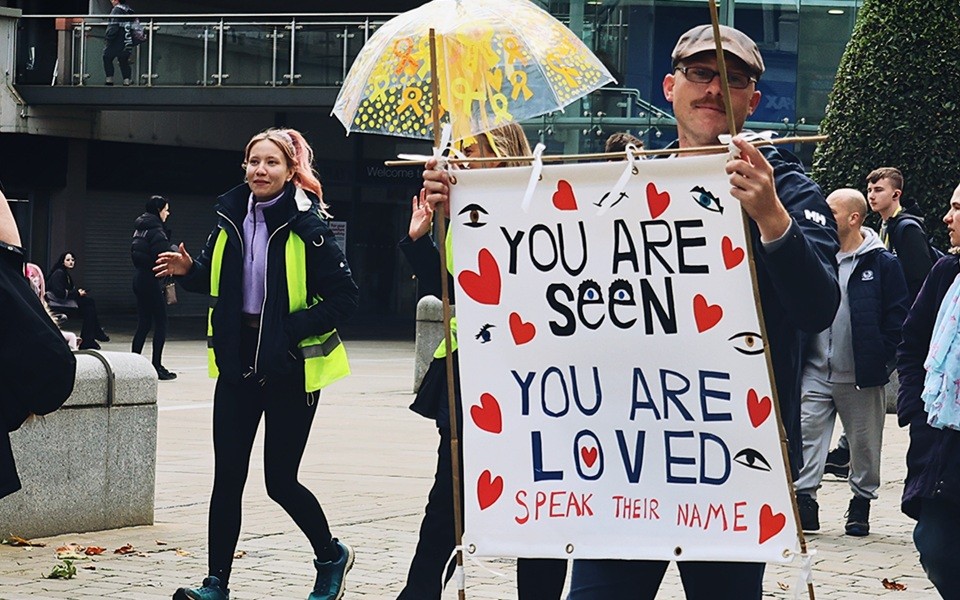 Welcome
HH
YOU ARE
SeeN
YOU ARE
LOVED
SPEAK THEIR NAME